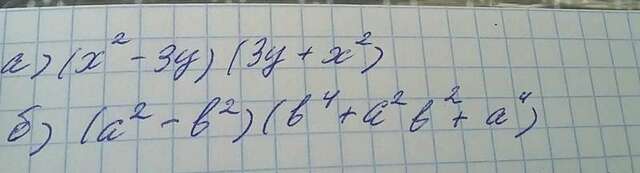 а) (x² - 3y) (3y + x²)
б) (a² - b²) (b⁴ + a² b² + a⁴)